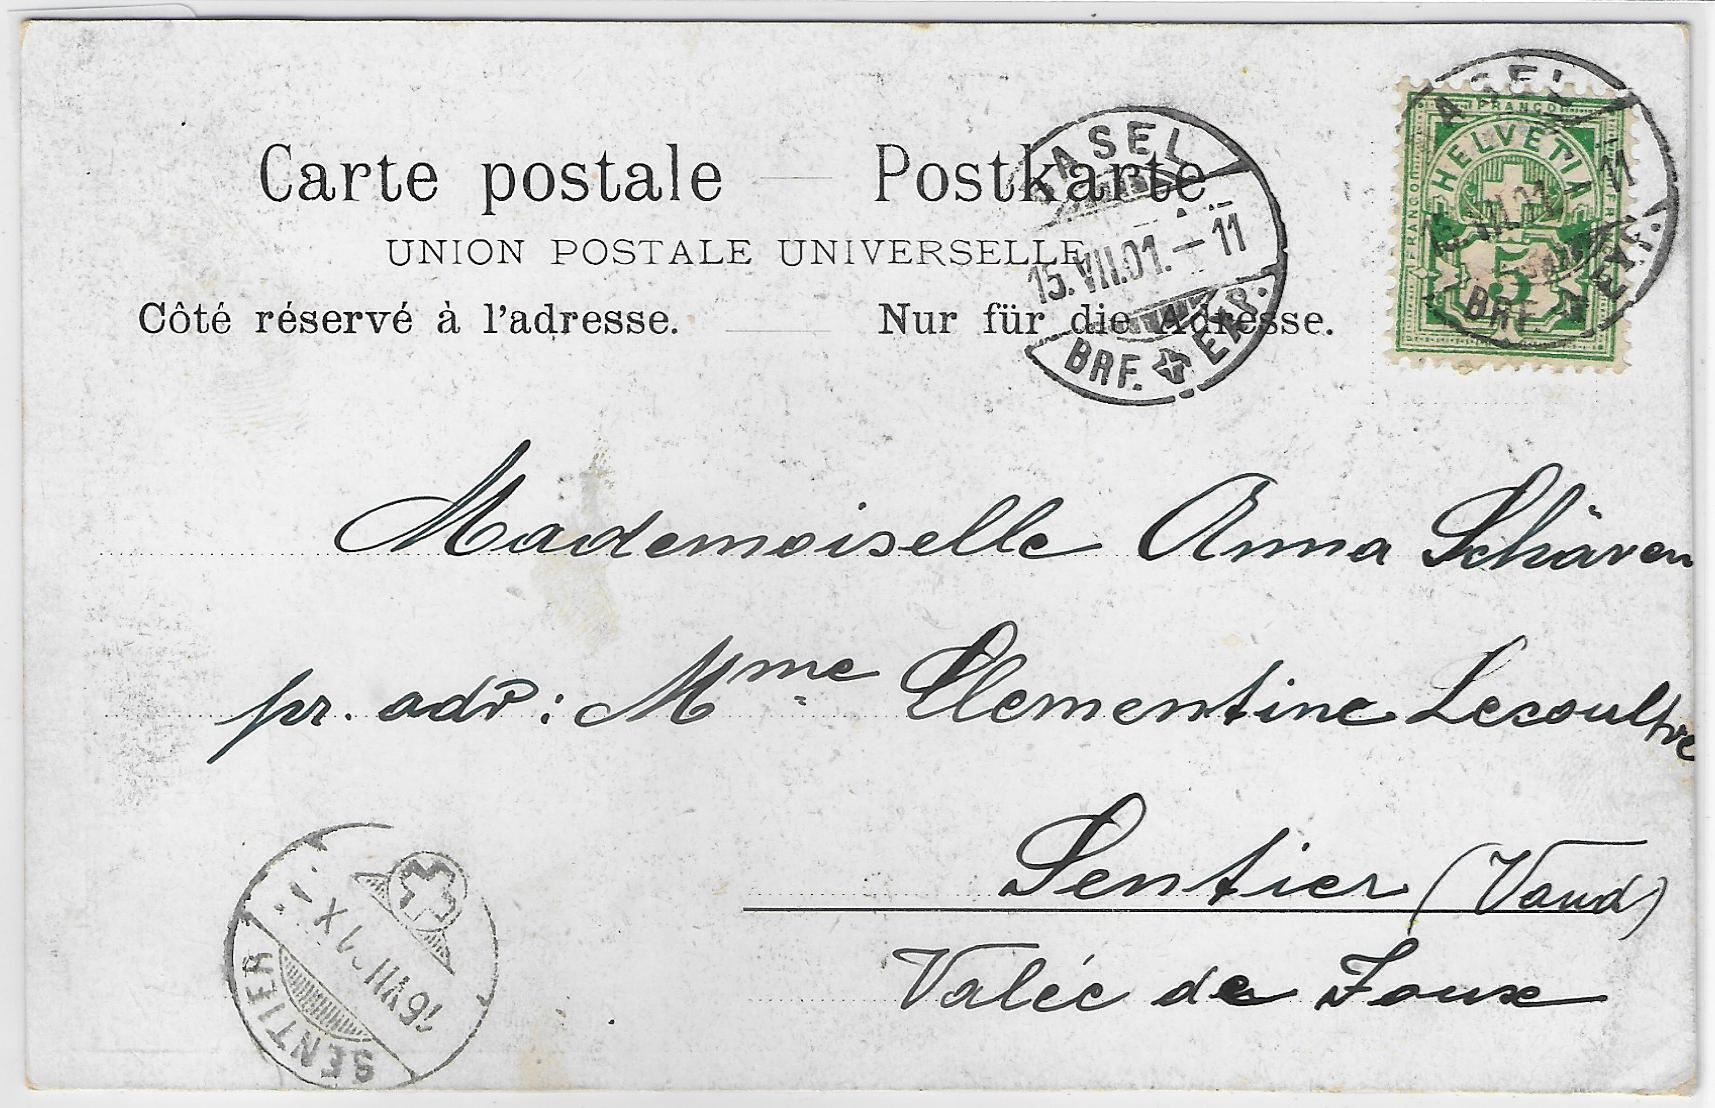 Carte postale — Postkarte
UNION POSTALE UNIVERSELLE
Côté réservé à l'adresse. — Nur für die Adresse.
BASEL
15.VII.01.–11
BRF. EXP.
FRANCO
FRANCO
HELVETIA
5
ASEL
VII.01
11
BRF. EXP.
Mademoiselle Anna Schären
pr. adr: Mme Clementine Lecoultre
Sentier (Vaud)
Valée de Joux
16 VII 01 X
SENTIER